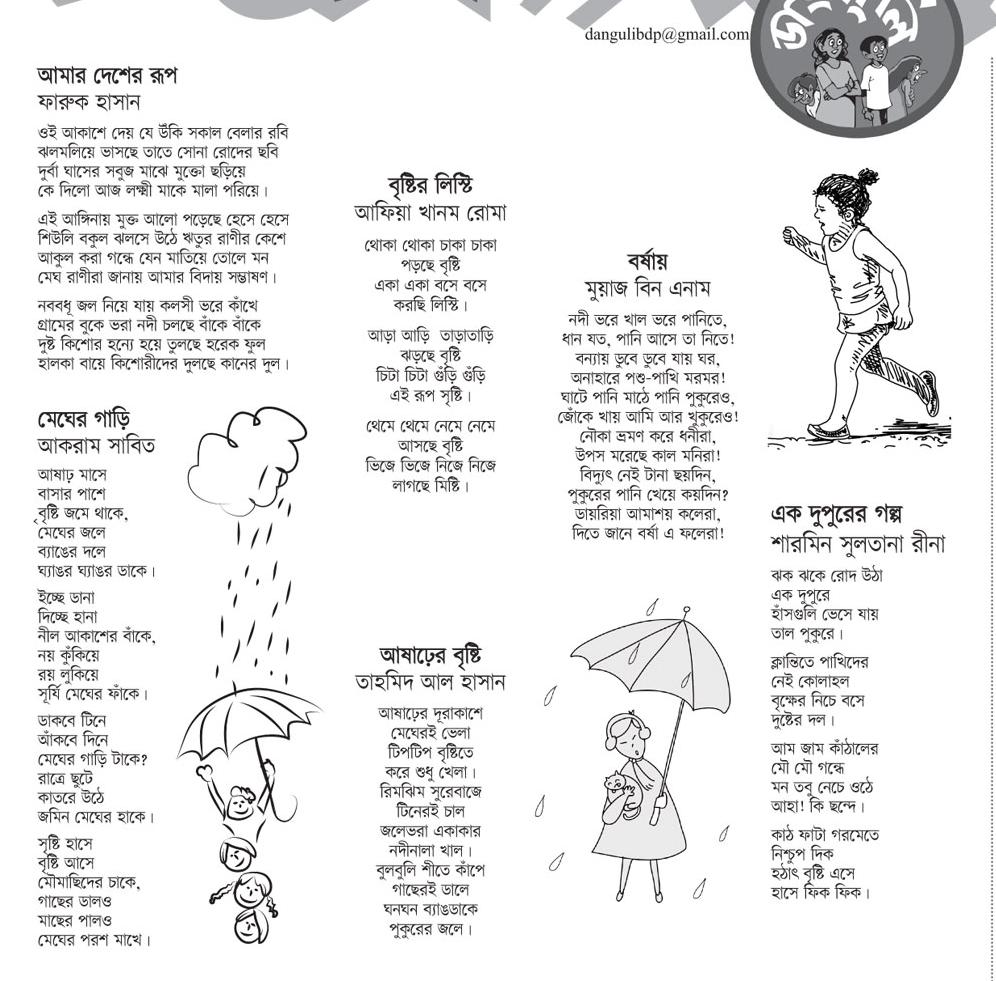 dangulibdp@gmail.com
আমার দেশের রূপ
ফারুক হাসান
ওই আকাশে দেয় যে উঁকি সকাল বেলার রবি
ঝলমলিয়ে ভাসছে তাতে সোনা রোদের ছবি
দুর্বা ঘাসের সবুজ মাঝে মুক্তো ছড়িয়ে
কে দিলো আজ লক্ষী মাকে মালা পরিয়ে।
এই আঙ্গিনায় মুক্ত আলো পড়েছে হেসে হেসে
শিউলি বকুল ঝলসে উঠে ঋতুর রাণীর কেশে
আকুল করা গন্ধে যেন মাতিয়ে তোলে মন
মেঘ রাণীরা জানায় আমার বিদায় সম্ভাষণ।
নববধূ জল নিয়ে যায় কলসী ভরে কাঁখে
গ্রামের বুকে ভরা নদী চলছে বাঁকে বাঁকে
দুষ্ট কিশোর হন্যে হয়ে তুলছে হরেক ফুল
হালকা বায়ে কিশোরীদের দুলছে কানের দুল।
মেঘের গাড়ি
আকরাম সাবিত
আষাঢ় মাসে
বাসার পাশে
বৃষ্টি জমে থাকে,
মেঘের জলে
ব্যাঙের দলে
ঘ্যাঙর ঘ্যাঙর ডাকে।
ইচ্ছে ডানা
দিচ্ছে হানা
নীল আকাশের বাঁকে,
নয় কুঁকিয়ে
রয় লুকিয়ে
সূর্যি মেঘের ফাঁকে।
ডাকবে টিনে
আঁকবে দিনে
মেঘের গাড়ি টাকে?
রাত্রে ছুটে
কাতরে উঠে
জমিন মেঘের হাকে।
সৃষ্টি হাসে
বৃষ্টি আসে
মৌমাছিদের চাকে,
গাছের ডালও
মাছের পালও
মেঘের পরশ মাখে।
বৃষ্টির লিস্টি
আফিয়া খানম রোমা
থোকা থোকা চাকা চাকা
পড়ছে বৃষ্টি
একা একা বসে বসে
করছি লিস্টি।
আড়া আড়ি তাড়াতাড়ি
ঝড়ছে বৃষ্টি
চিটা চিটা গুঁড়ি গুঁড়ি
এই রূপ সৃষ্টি।
থেমে থেমে নেমে নেমে
আসছে বৃষ্টি
ভিজে ভিজে নিজে নিজে
লাগছে মিষ্টি।
আষাঢ়ের বৃষ্টি
তাহমিদ আল হাসান
আষাঢ়ের দূরাকাশে
মেঘেরই ভেলা
টিপটিপ বৃষ্টিতে
করে শুধু খেলা।
রিমঝিম সুরেবাজে
টিনেরই চাল
জলেভরা একাকার
নদীনালা খাল।
বুলবুলি শীতে কাঁপে
গাছেরই ডালে
ঘনঘন ব্যাঙডাকে
পুকুরের জলে।
বর্ষায়
মুয়াজ বিন এনাম
নদী ভরে খাল ভরে পানিতে,
ধান যত, পানি আসে তা নিতে!
বন্যায় ডুবে ডুবে যায় ঘর,
অনাহারে পশু-পাখি মরমর!
ঘাটে পানি মাঠে পানি পুকুরেও,
জোঁকে খায় আমি আর খুকুরেও!
নৌকা ভ্রমণ করে ধনীরা,
উপস মরেছে কাল মনিরা!
বিদ্যুৎ নেই টানা ছয়দিন,
পুকুরের পানি খেয়ে কয়দিন?
ডায়রিয়া আমাশয় কলেরা,
দিতে জানে বর্ষা এ ফলেরা!
এক দুপুরের গল্প
শারমিন সুলতানা রীনা
ঝক ঝকে রোদ উঠা
এক দুপুরে
হাঁসগুলি ভেসে যায়
তাল পুকুরে।
ক্লান্তিতে পাখিদের
নেই কোলাহল
বৃক্ষের নিচে বসে
দুষ্টের দল।
আম জাম কাঁঠালের
মৌ মৌ গন্ধে
মন তবু নেচে ওঠে
আহা! কি ছন্দে।
কাঠ ফাটা গরমেতে
নিশ্চুপ দিক
হঠাৎ বৃষ্টি এসে
হাসে ফিক ফিক।